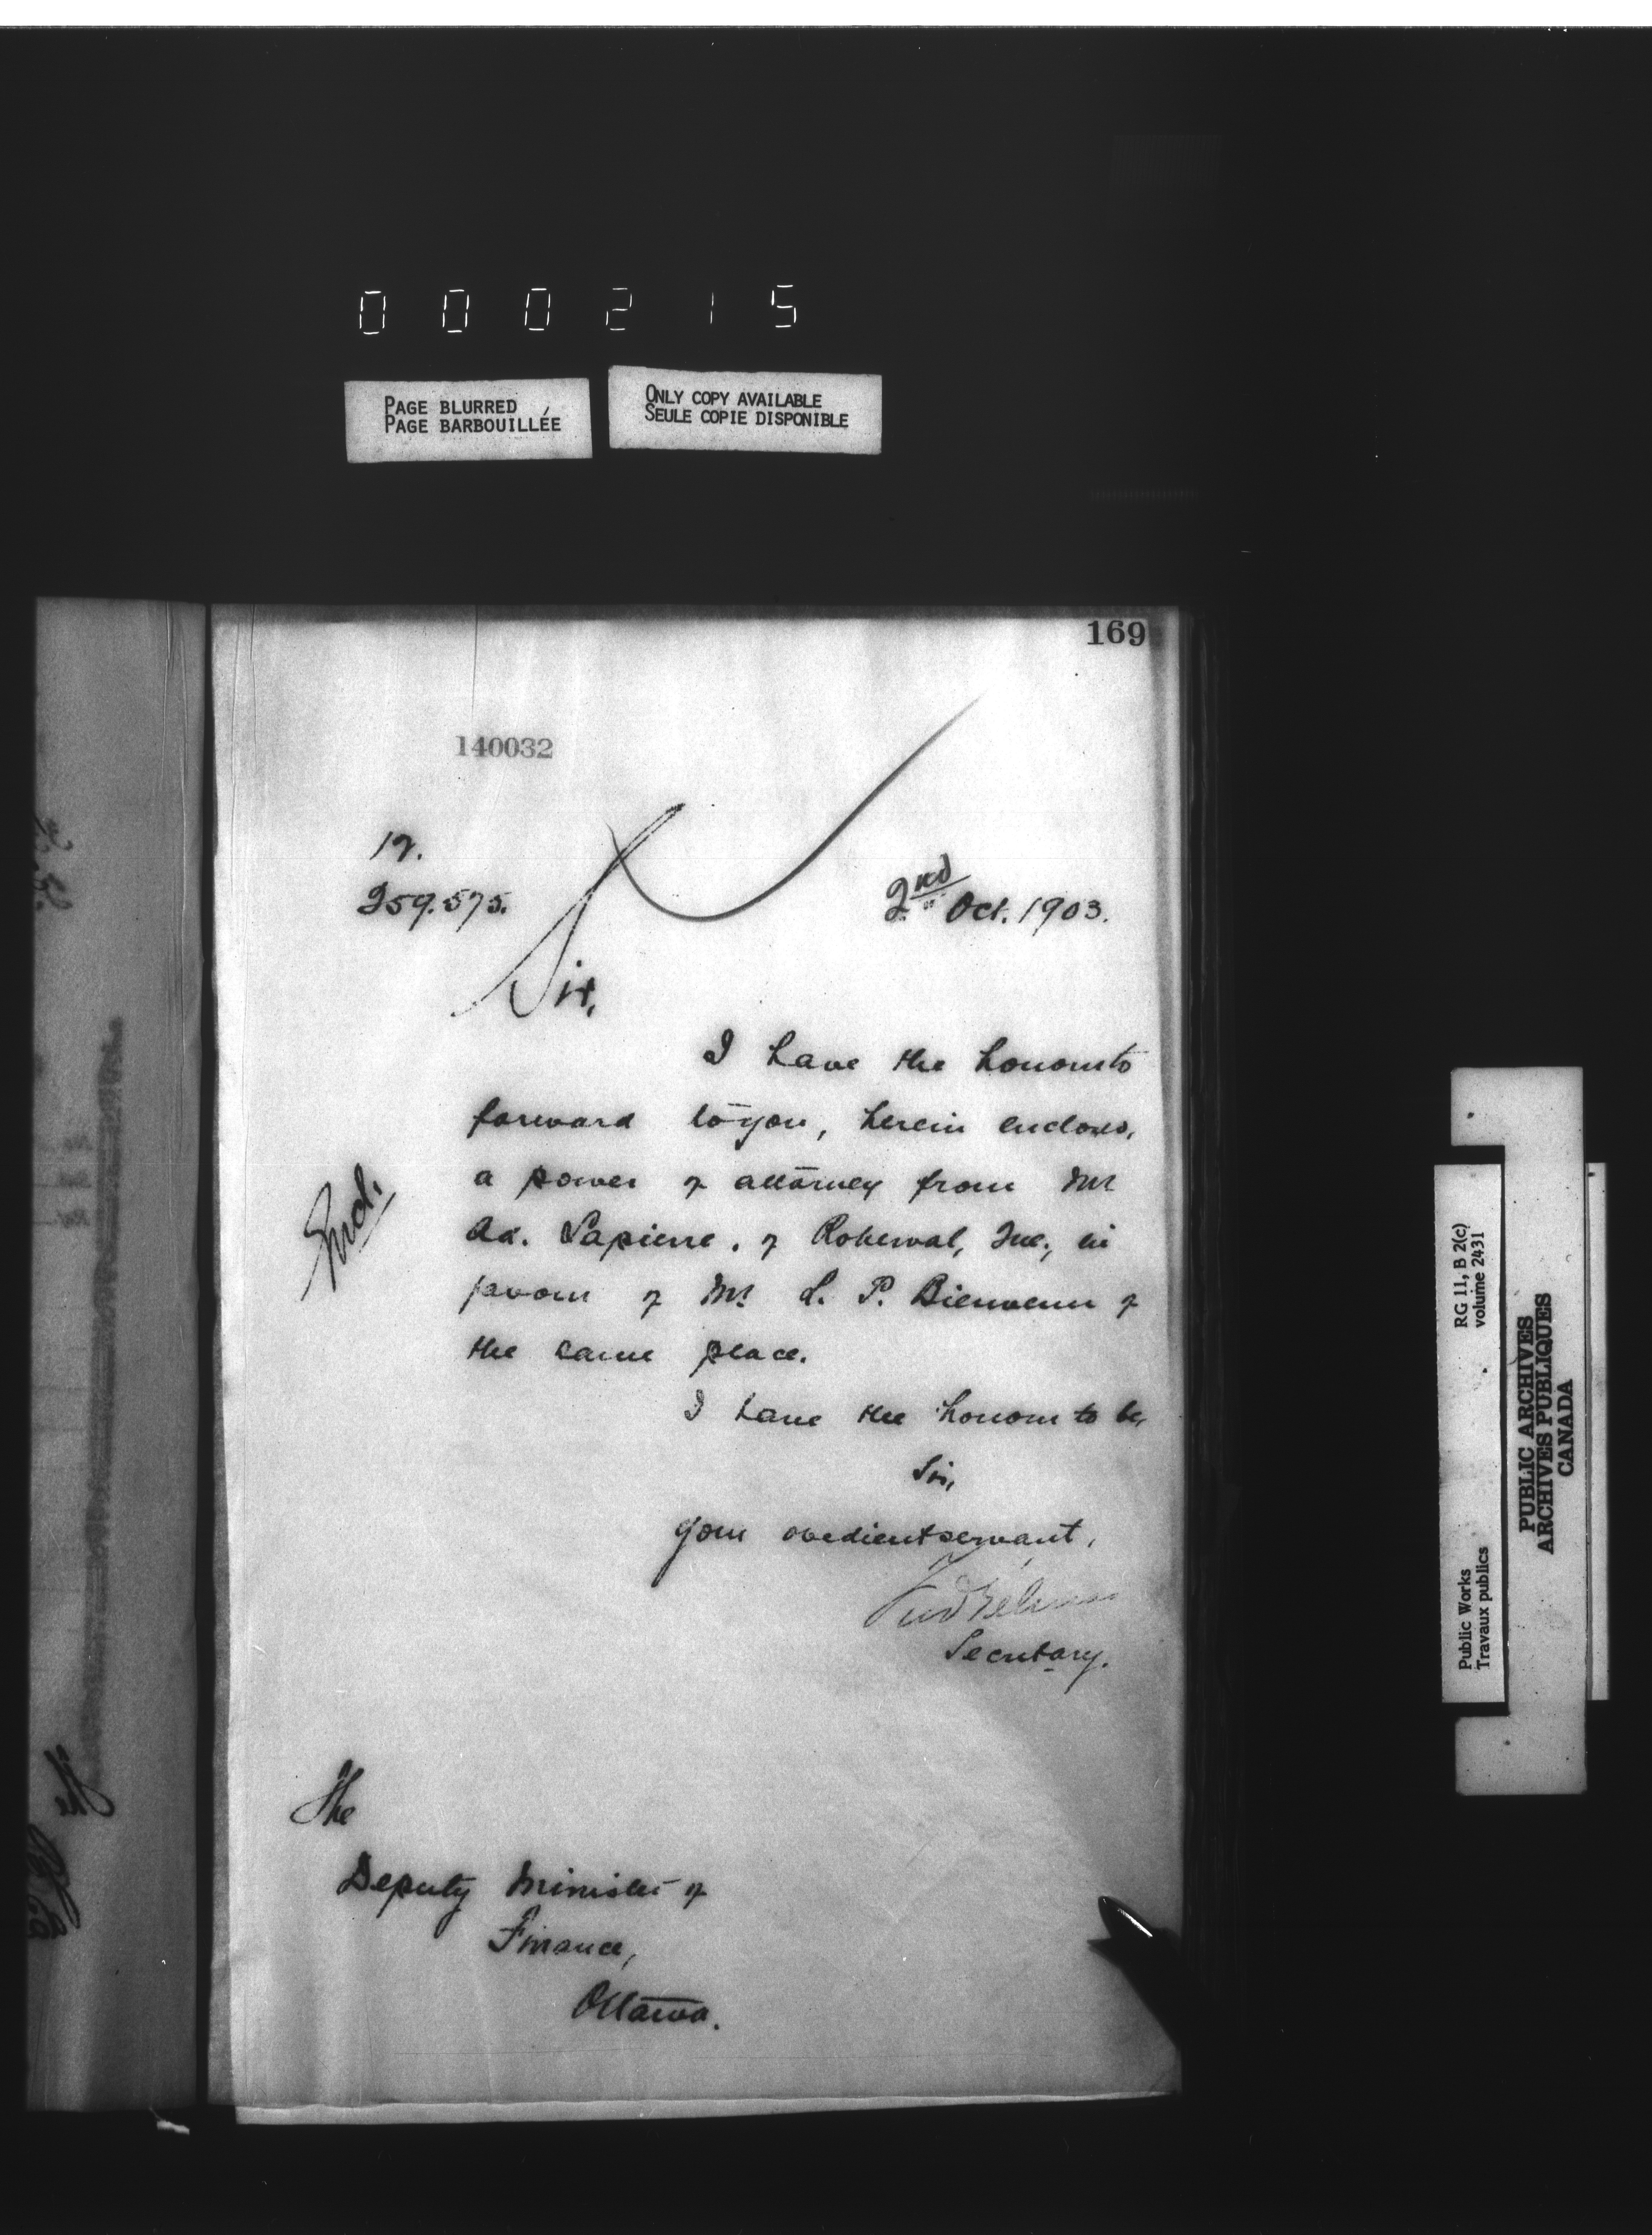 000215
PAGE BLURRED
PAGE BARBOUILLÉE
ONLY COPY AVAILABLE
SEULE COPIE DISPONIBLE
169
140032
259.575.
2nd Oct. 1903.
Sir,
I have the honour to
forward to you, herein enclosed,
a power of attorney from Mr
Ad. Lapierre, of Roberval, Que., in
favour of Mr. L. P. Bienvenu of
the same place.
Encl.
I have the honour to be,
Sir,
Your obedient servant,
Secretary.
The
Deputy Minister of
Finance,
Ottawa.
RG 11, B 2(c)
volume 2431
Public Works
Travaux publics
PUBLIC ARCHIVES
ARCHIVES PUBLIQUES
CANADA